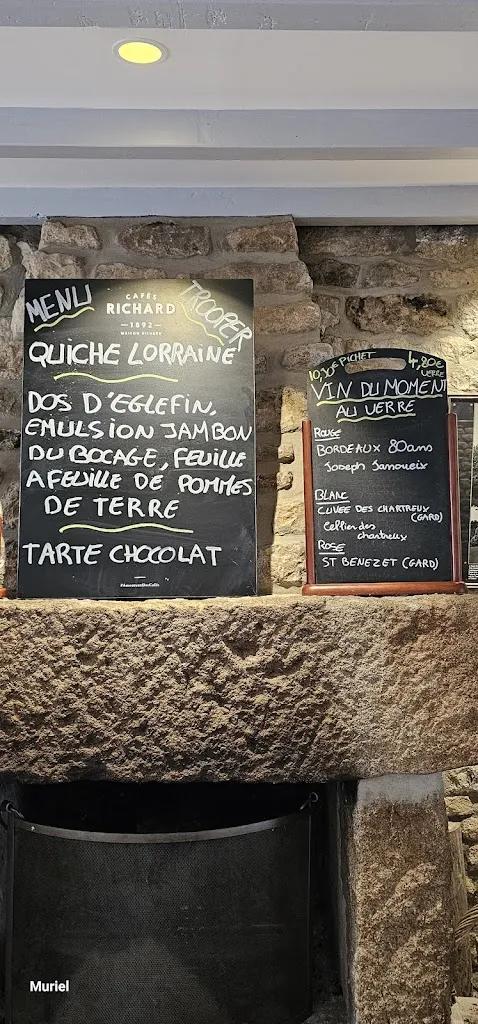 MENU
CAFÉS
RICHARD
1892
MAISON RICHARD
TROOPER
QUICHE LORRAINE
DOS D'EGLEFIN,
EMULSION JAMBON
DU BOCAGE, FEUILLE
A FEUILLE DE POMMES
DE TERRE
TARTE CHOCOLAT
10,30€ PICHET
4,80€
VERRE
VIN DU MOMENT
AU VERRE
ROUGE
BORDEAUX 80ans
Joseph Janoueix
BLANC
CUVEE DES CHARTREUX
(GARD)
Cellier des
chartreux
ROSE
ST BENEZET (GARD)
Muriel